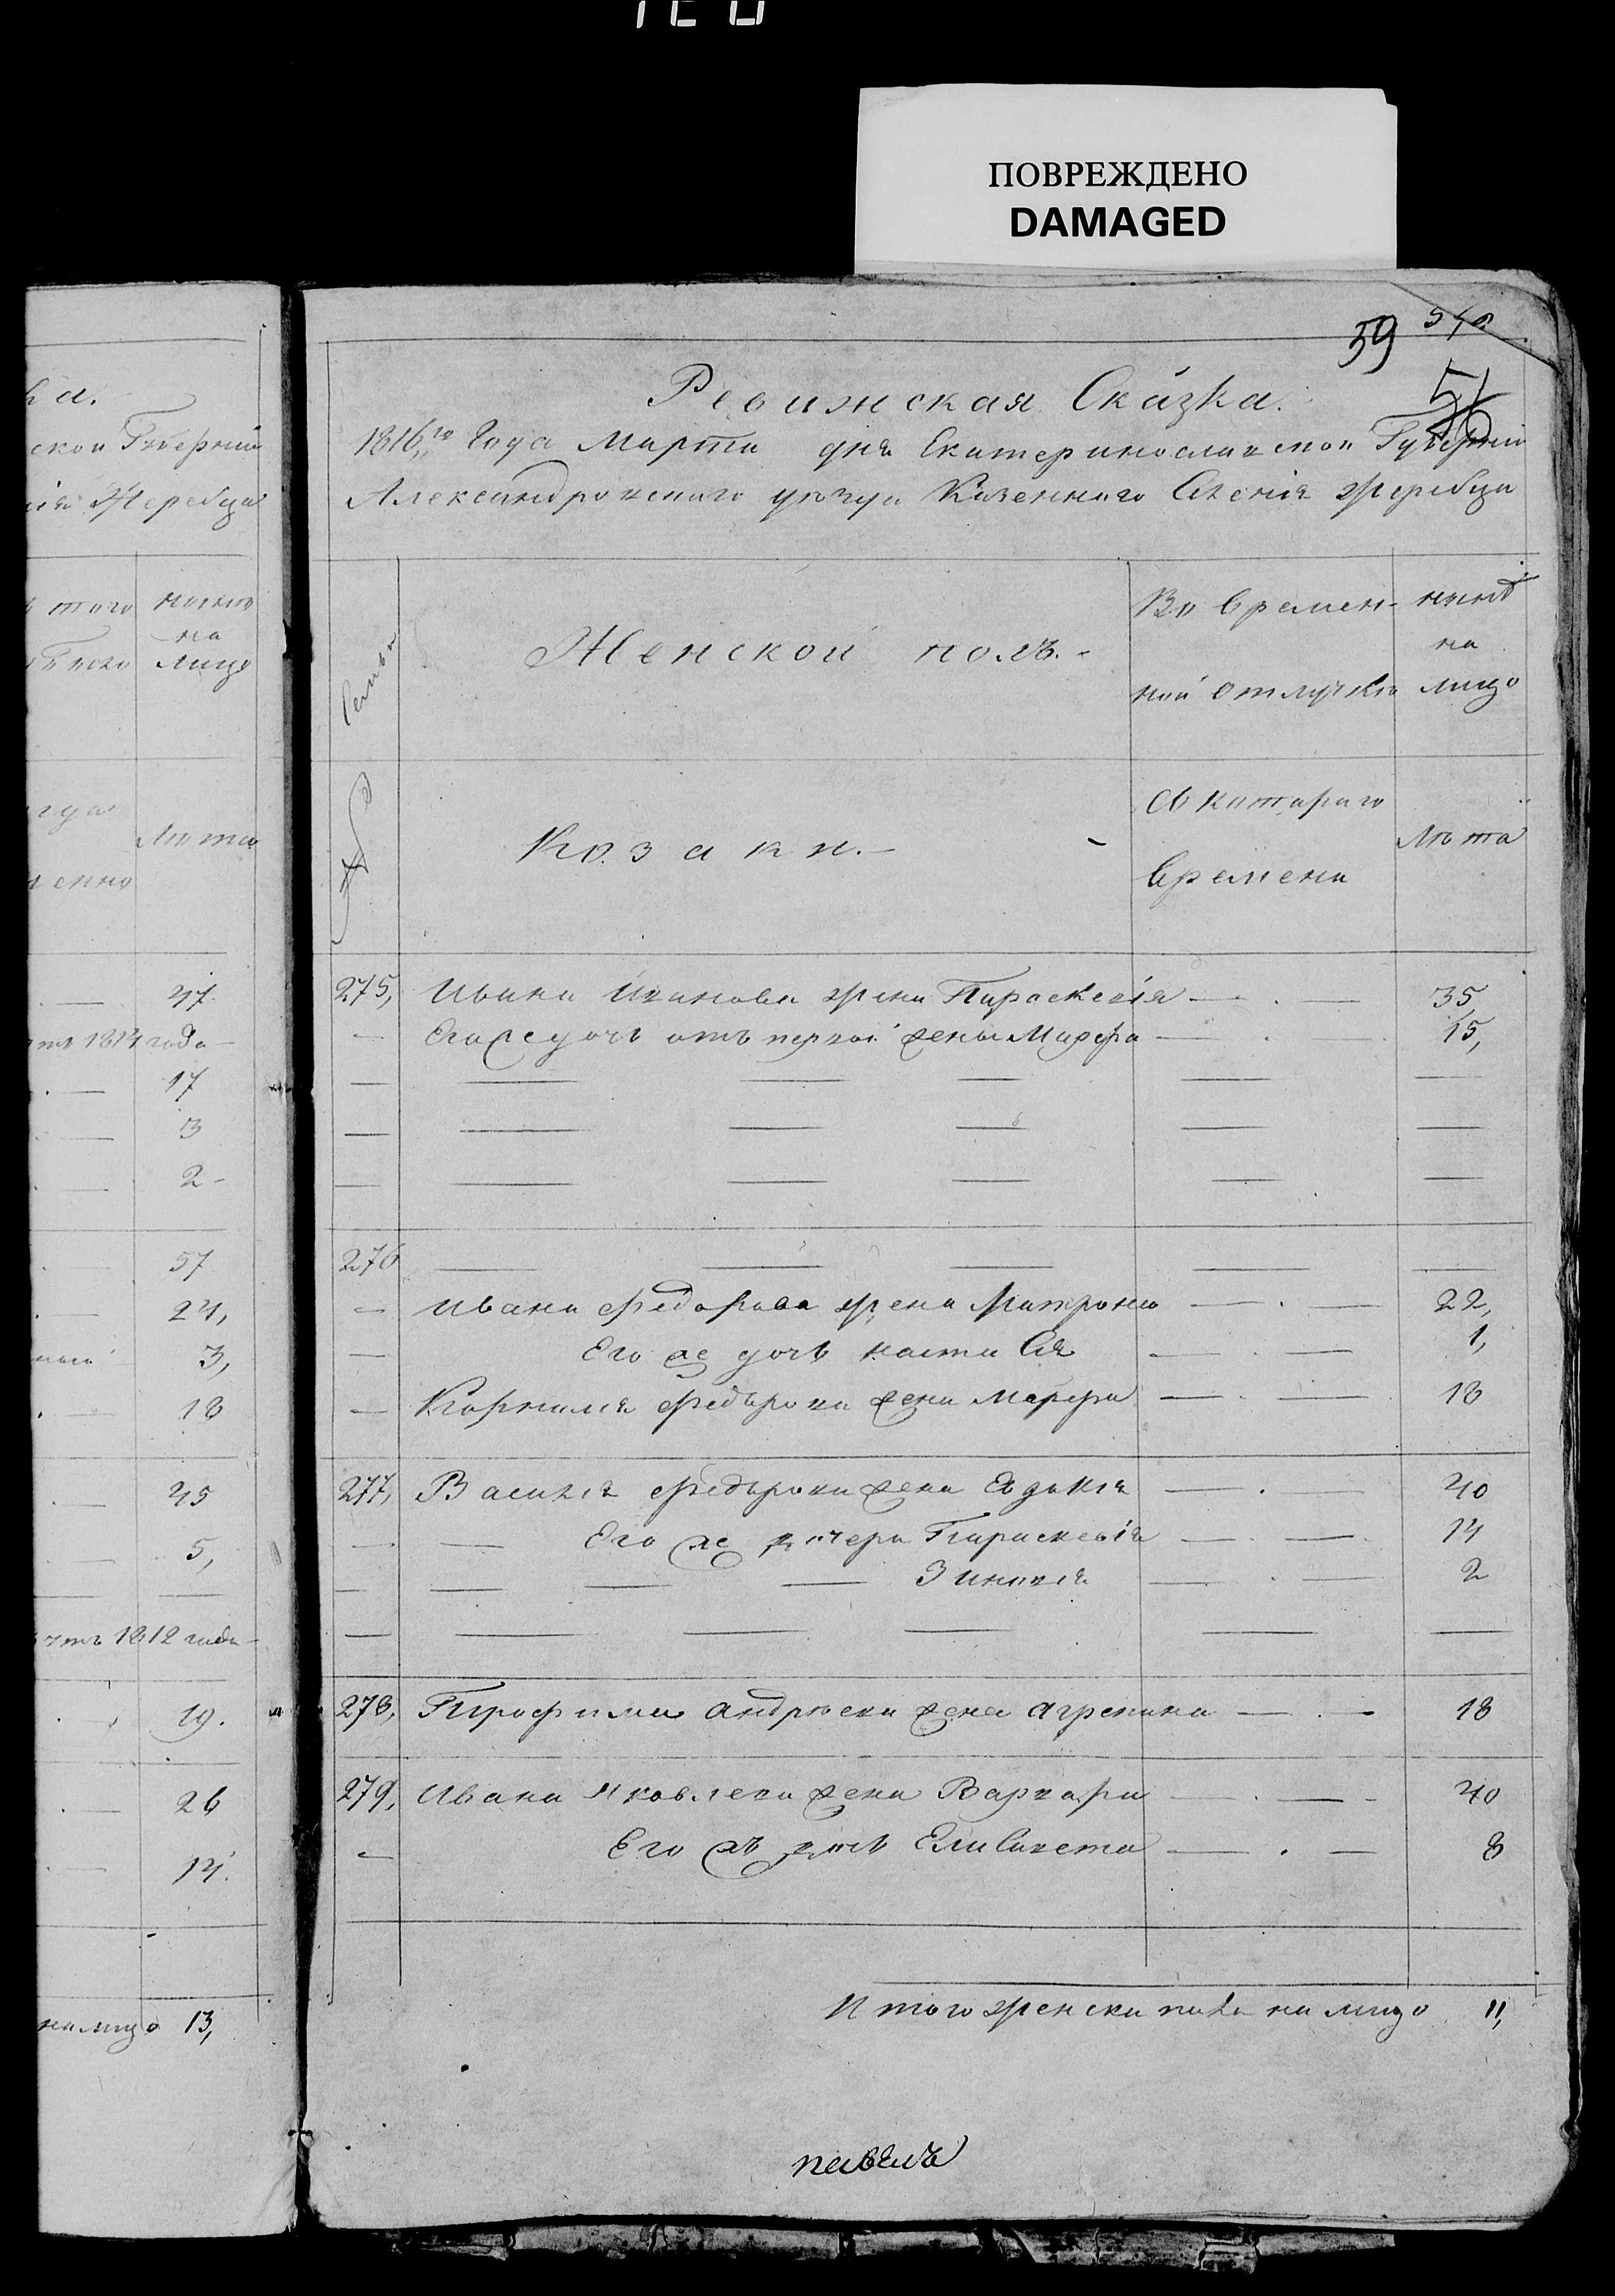 ПОВРЕЖДЕНО
DAMAGED
59
56
Ревижская Сказка.
1816го Года Марта дня Екатеринославской Губерніи
Александровского уезда Казенного Селенія Жеребца
Женской полъ.
Во времен-
ной отлучке
ныне
на
лицо
Козаки.
Съ котораго
времени
лета
275, Ивана Иванова жена Параскевія 35
Его же дочь отъ первой жены Марфа 15,
276
Ивана Федорова жена Матрона 22,
Его же дочь настасія 1,
Корнилія Федорова жена Марфа 18
277, Василія Федорова жена Евдокія 40
Его же дочери Параскевія 14
Зиновія 2
278, Трофима андреева жена агрепина 18
279, Ивана Яковлева жена Варвара 40
Его жъ дочь Елисавета 8
Итого женска пола на лицо 11,
павелъ
ской Губерніи
Жеребца
того
ныне
на
лицо
лета
47.
1814 года
17
3
2
57
24,
3,
18
45
5,
1812 года
19.
26
14.
на лицо 13,